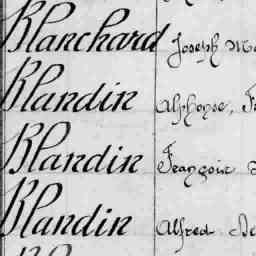 Blanchard Joseph
Blandin Alphonse,
Blandin François
Blandin Alfred